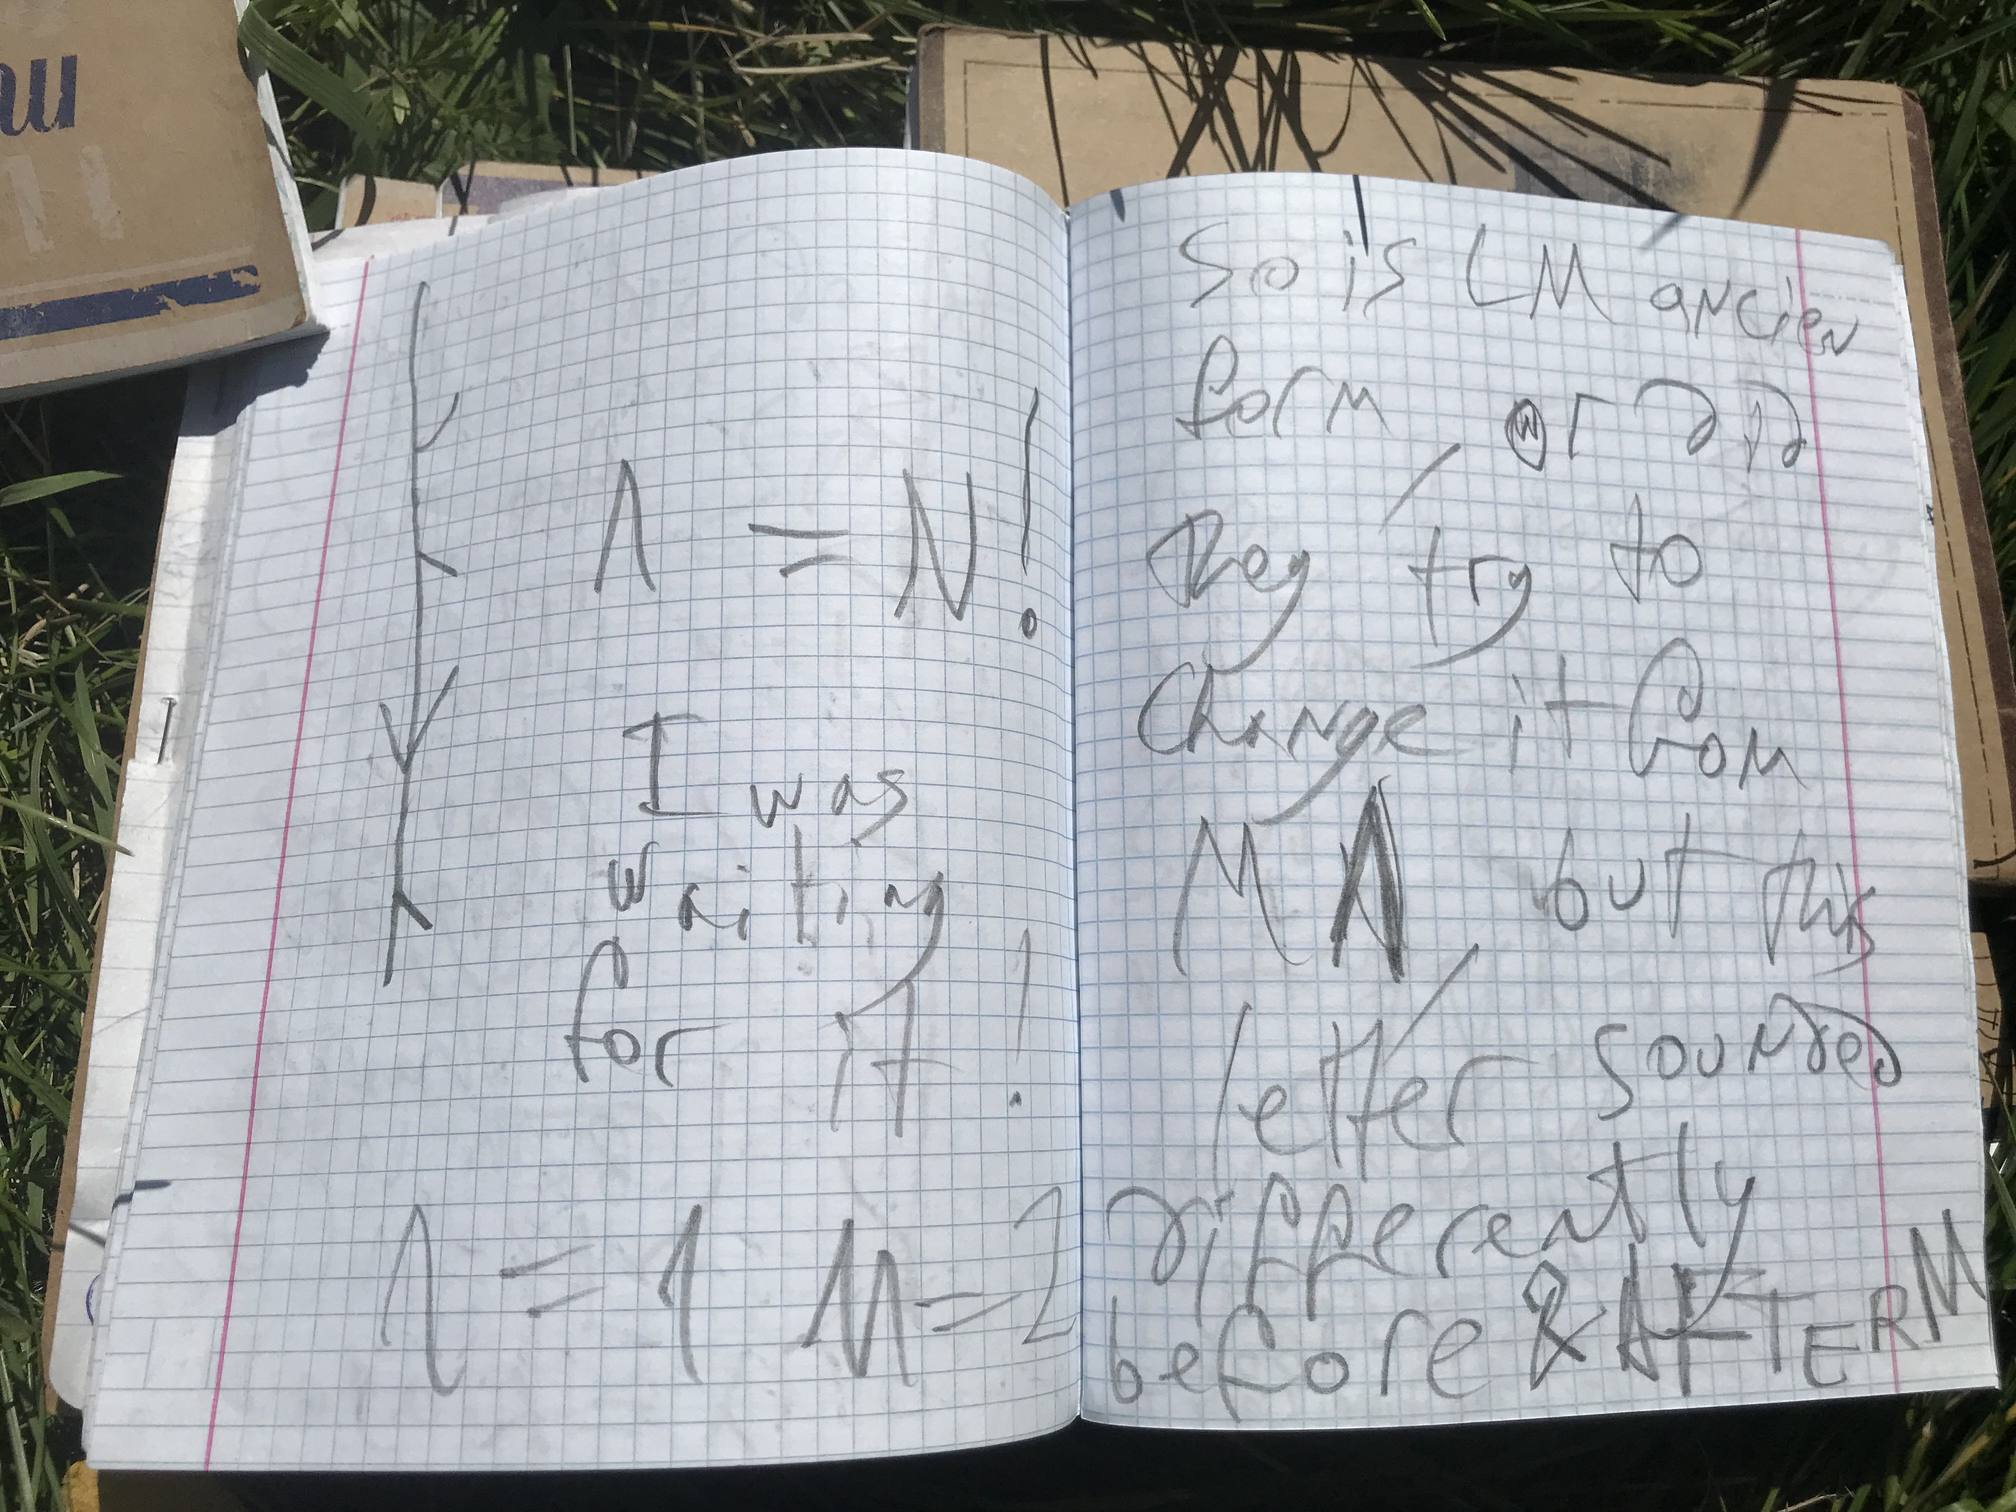 Λ = N!
I was
waiting
for it!
= 1 M = 2
So is LM ancien
form or did
they try to
change it from
M Λ but this
letter sounded
differently
before & AFTERM